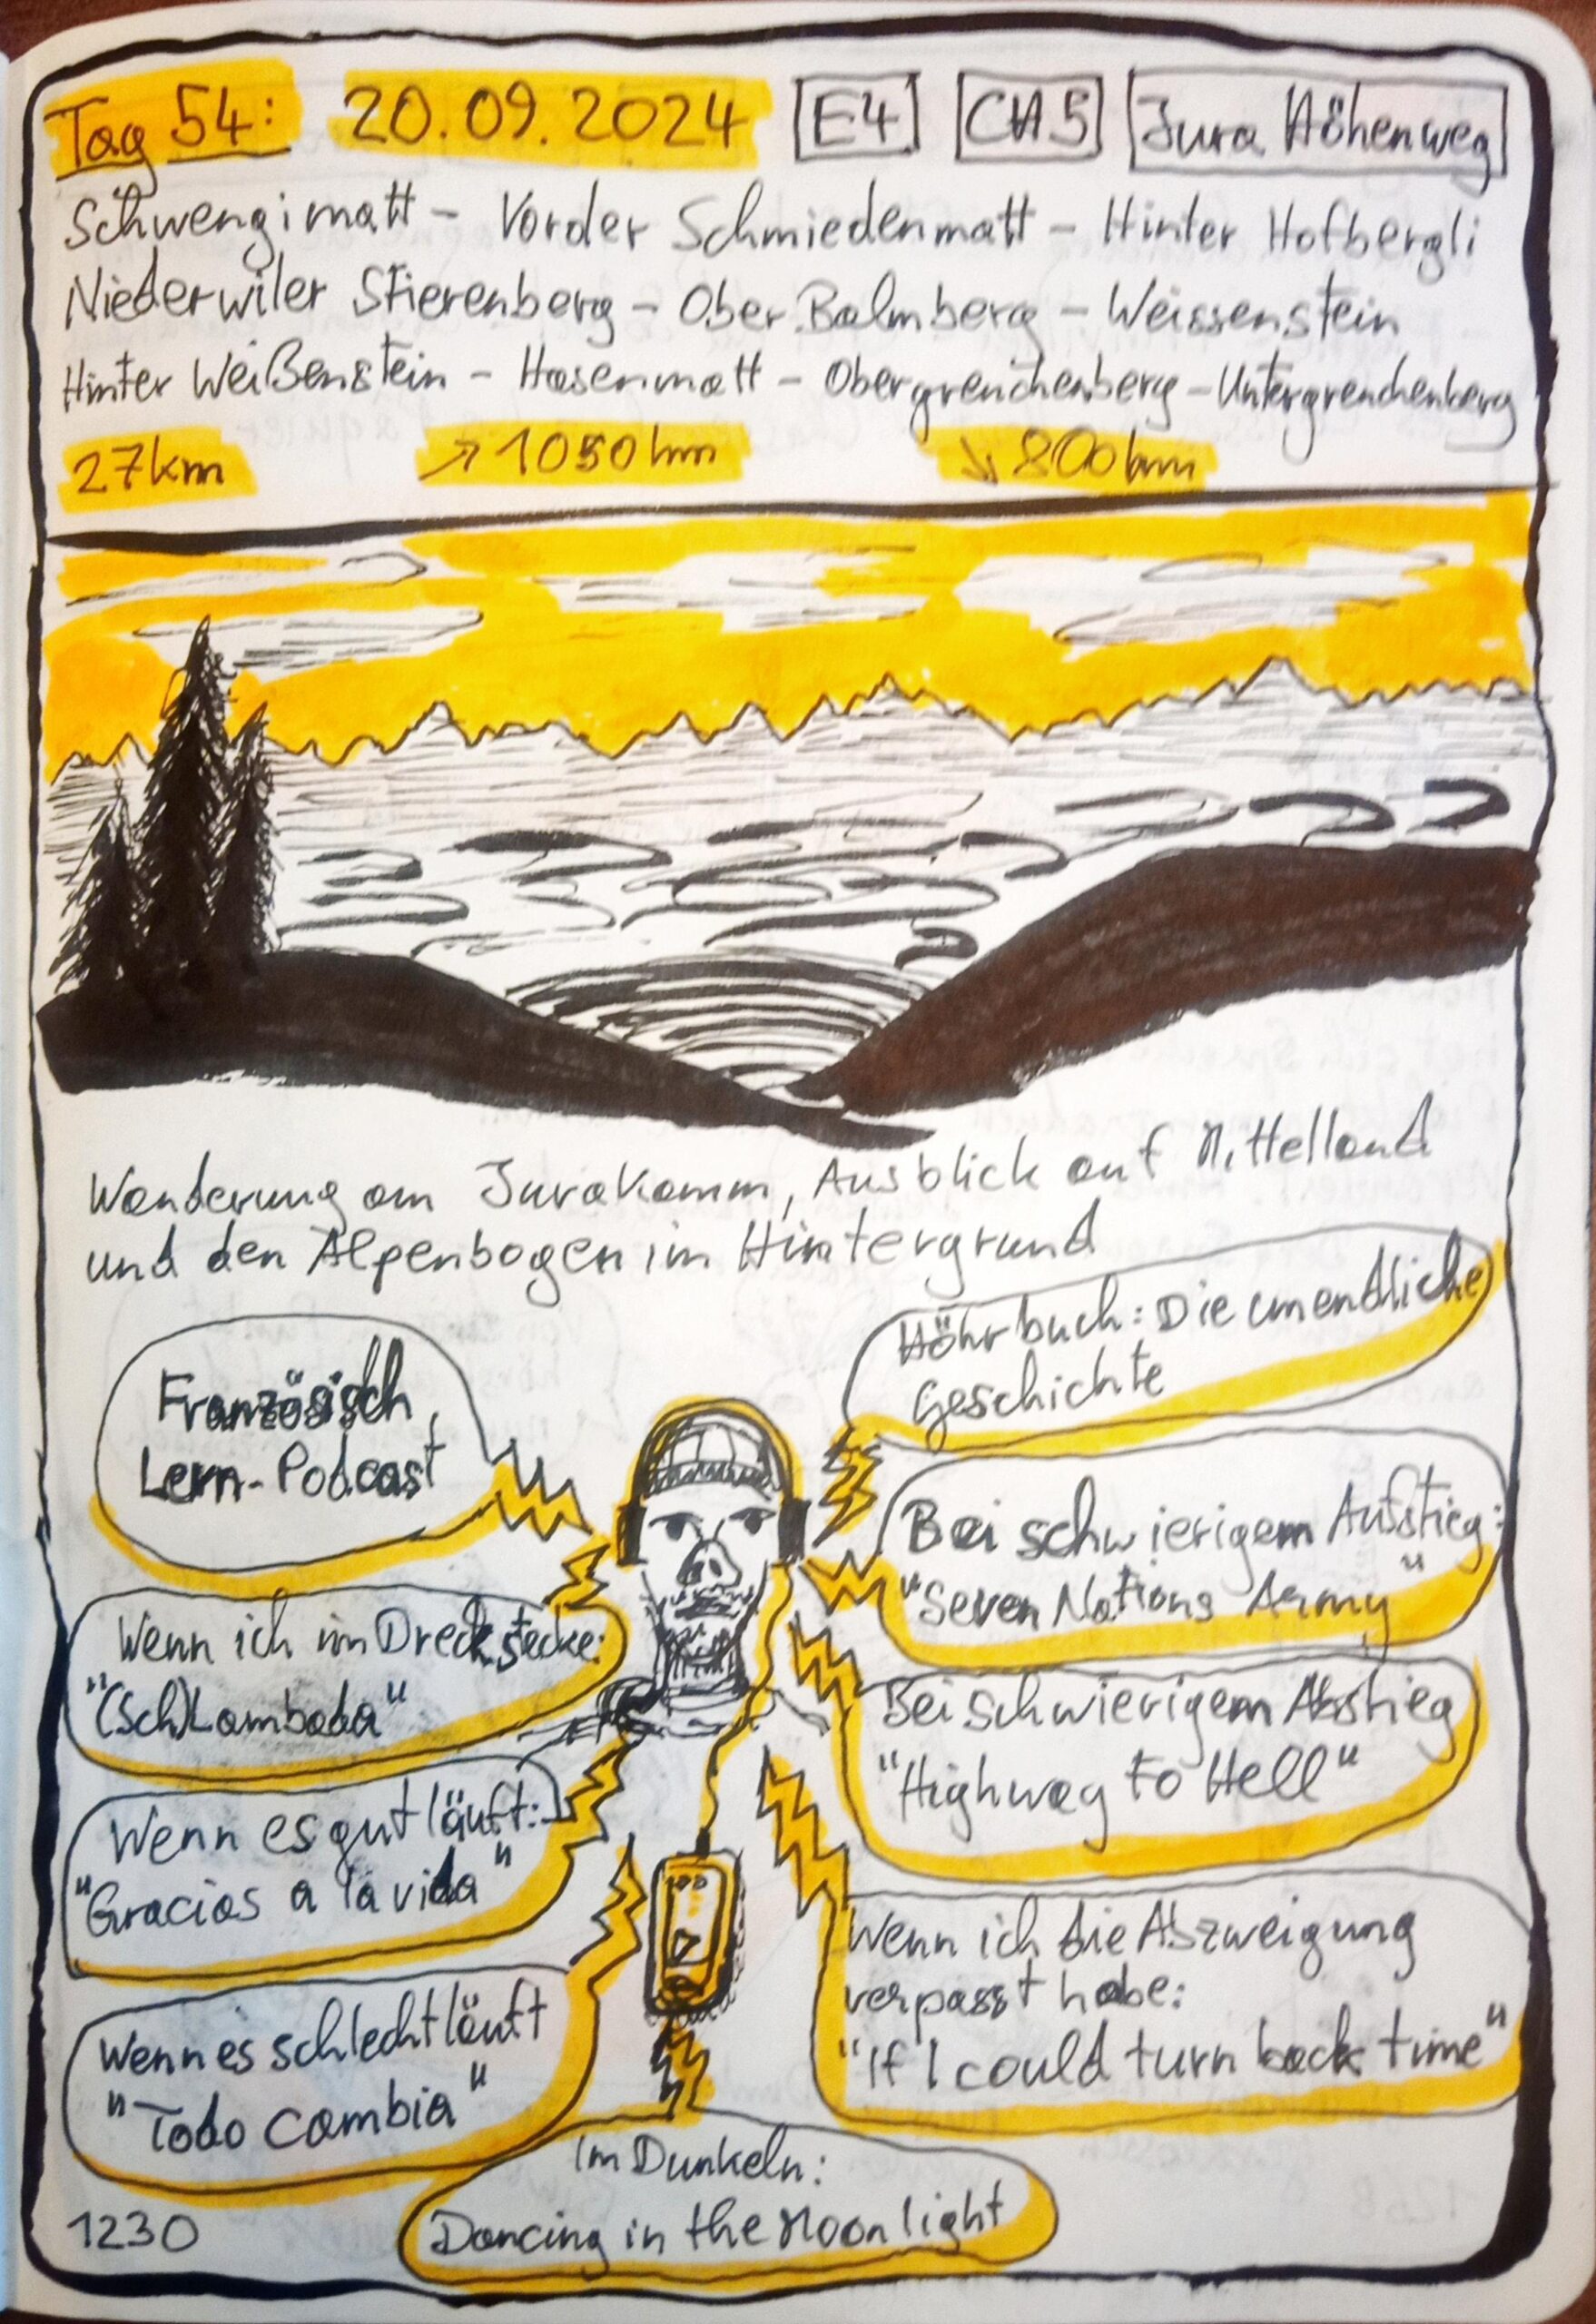 Tag 54: 20.09.2024 E4 CH5 Jura Höhenweg
Schwengimatt - Vorder Schmiedenmatt - Hinter Hofbergli
Niederwiler Stierenberg - Ober Balmberg - Weissenstein
Hinter Weißenstein - Hasenmatt - Obergrenchenberg - Untergrenchenberg
27km ↗ 1050hm ↘ 800hm
Wanderung am Jurakamm, Ausblick auf Mittelland
und den Alpenbogen im Hintergrund
Französisch
Lern-Podcast
Wenn ich im Dreck stecke:
"(Sch)Lambada"
Wenn es gut läuft:
"Gracias a la vida"
Wenn es schlecht läuft
"Todo cambia"
Höhrbuch: Die unendliche
Geschichte
Bei schwierigem Aufstieg:
"Seven Nations Army"
Bei schwierigem Abstieg
"Highway to Hell"
Wenn ich die Abzweigung
verpasst habe:
"If I could turn back time"
Im Dunkeln:
Dancing in the Moonlight
1230